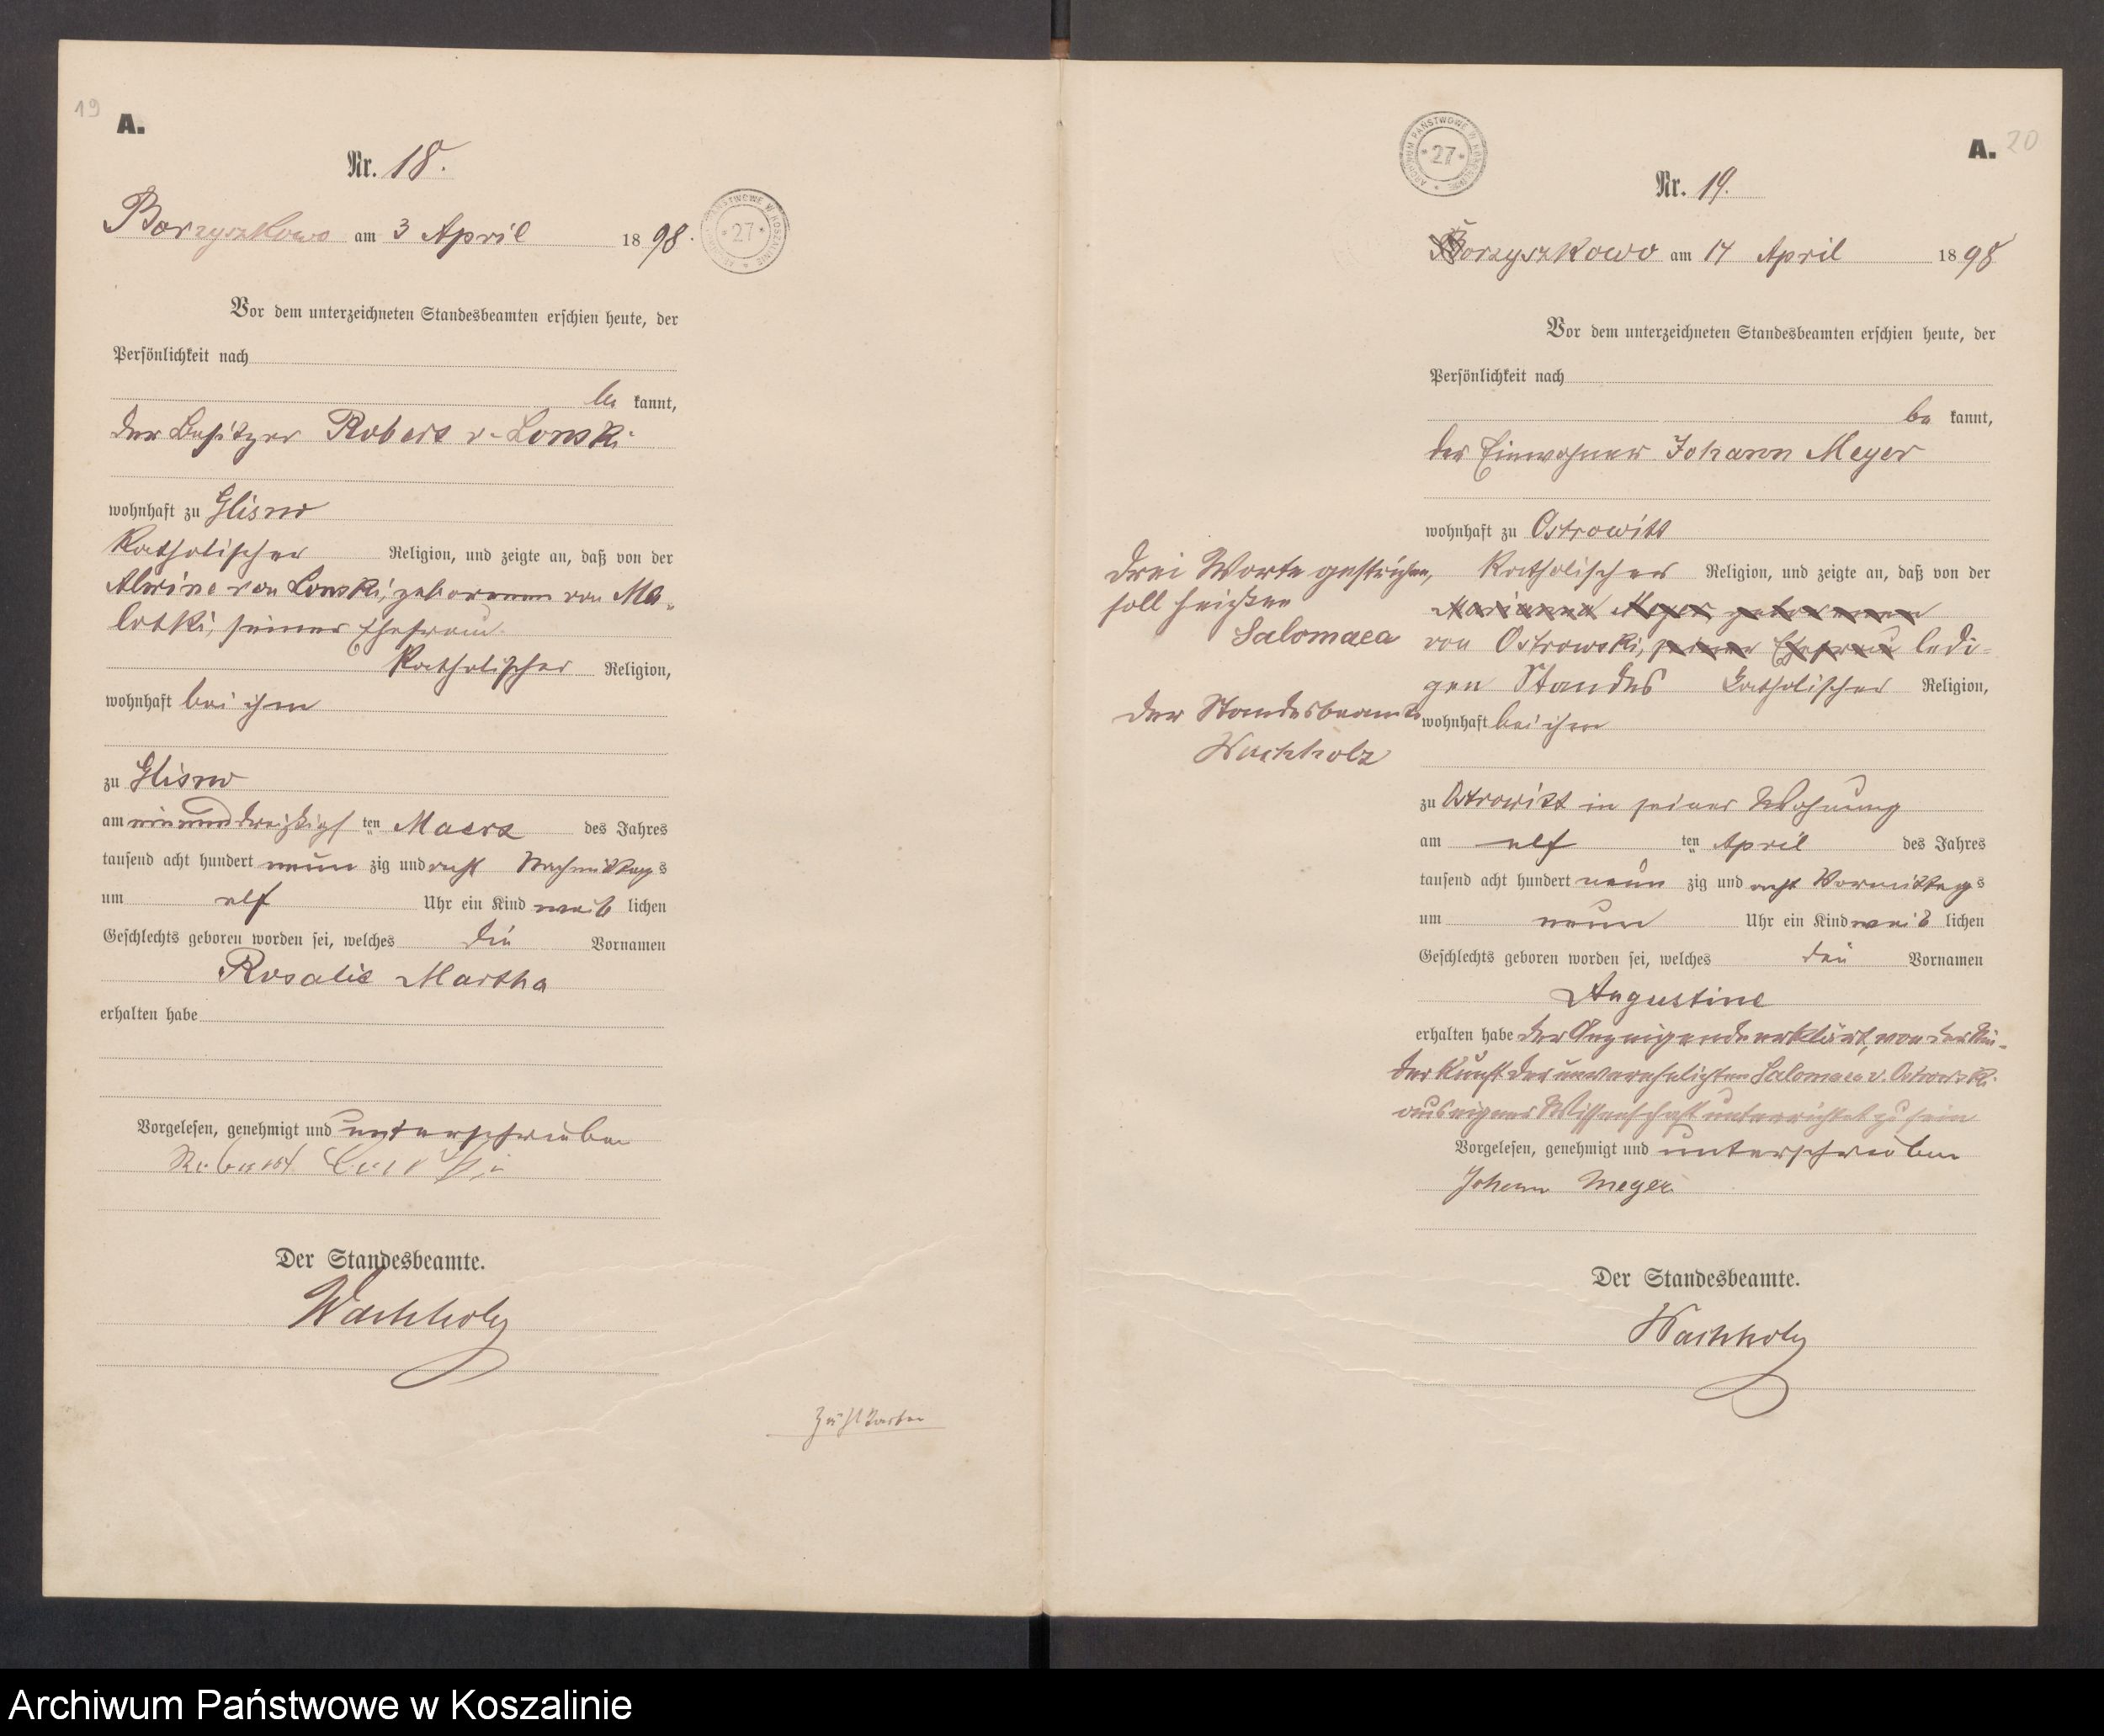 19
A.
Nr. 18.
Borzyszkowo am 3 April 1898.
ARCHIWUM PAŃSTWOWE W KOSZALINIE * 27 *
Vor dem unterzeichneten Standesbeamten erschien heute, der
Persönlichkeit nach
be kannt,
der Besitzer Robert v. Lonski
wohnhaft zu Glisno
katholischer Religion, und zeigte an, daß von der
Alwine von Lonski, geborenen von Ma-
lotki, seiner Ehefrau
katholischer Religion,
wohnhaft bei ihm
zu Glisno
am einunddreißigsten Maerz des Jahres
tausend acht hundert neun zig und acht Nachmittags
um elf Uhr ein Kind weib lichen
Geschlechts geboren worden sei, welches die Vornamen
Rosalie Martha
erhalten habe
Vorgelesen, genehmigt und unterschrieben
Robert
Der Standesbeamte.
Wachholz
Zählkarten
ARCHIWUM PAŃSTWOWE W KOSZALINIE * 27 *
A. 20
Nr. 19.
Borzyszkowo am 14 April 1898
Vor dem unterzeichneten Standesbeamten erschien heute, der
Persönlichkeit nach
be kannt,
der Einwohner Johann Meyer
wohnhaft zu Ostrowitt
katholischer Religion, und zeigte an, daß von der
Marianna Meyer geborenen
von Ostrowski, seiner Ehefrau ledi-
gen Standes katholischer Religion,
wohnhaft bei ihm
zu Ostrowitt in seiner Wohnung
am elf ten April des Jahres
tausend acht hundert neun zig und acht Vormittags
um neun Uhr ein Kind weib lichen
Geschlechts geboren worden sei, welches den Vornamen
Augustine
erhalten habe der Anzeigende erklärt, von der Nie-
derkunft der unverehelichten Salomaea v. Ostrowski
aus eigener Wissenschaft unterrichtet zu sein
Vorgelesen, genehmigt und unterschrieben
Johann Meyer
Der Standesbeamte.
Wachholz
Drei Worte gestrichen,
soll heißen
Salomaea
Der Standesbeamte
Wachholz
Archiwum Państwowe w Koszalinie